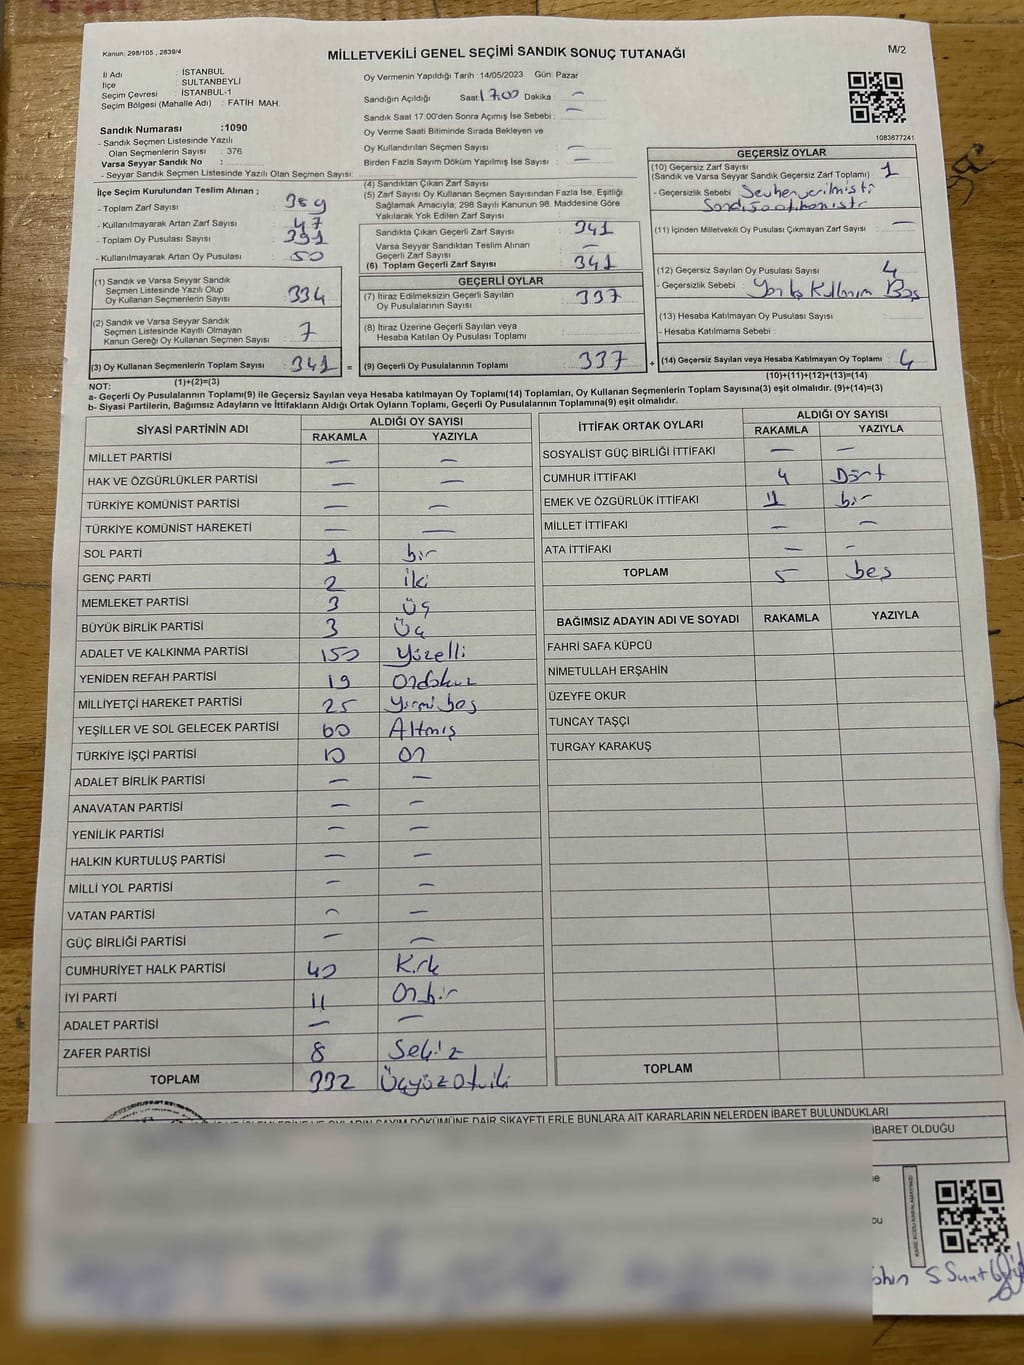 Kanun: 298/105 , 2839/4
MİLLETVEKİLİ GENEL SEÇİMİ SANDIK SONUÇ TUTANAĞI
M/2
İl Adı : İSTANBUL
İlçe : SULTANBEYLİ
Seçim Çevresi : İSTANBUL-1
Seçim Bölgesi (Mahalle Adı) : FATİH MAH.
Sandık Numarası :1090
- Sandık Seçmen Listesinde Yazılı
Olan Seçmenlerin Sayısı : 376
Varsa Seyyar Sandık No :
- Seyyar Sandık Seçmen Listesinde Yazılı Olan Seçmen Sayısı:
Oy Vermenin Yapıldığı Tarih :14/05/2023 Gün: Pazar
Sandığın Açıldığı Saat 17.00 Dakika : —
Sandık Saat 17:00'den Sonra Açımış İse Sebebi : —
Oy Verme Saati Bitiminde Sırada Bekleyen ve
Oy Kullandırılan Seçmen Sayısı : —
Birden Fazla Sayım Döküm Yapılmış İse Sayısı : —
1083677241
İlçe Seçim Kurulundan Teslim Alınan ;
- Toplam Zarf Sayısı : 389
- Kullanılmayarak Artan Zarf Sayısı : 47
- Toplam Oy Pusulası Sayısı : 391
- Kullanılmayarak Artan Oy Pusulası : 50
(1) Sandık ve Varsa Seyyar Sandık
Seçmen Listesinde Yazılı Olup
Oy Kullanan Seçmenlerin Sayısı : 334
(2) Sandık ve Varsa Seyyar Sandık
Seçmen Listesinde Kayıtlı Olmayan
Kanun Gereği Oy Kullanan Seçmen Sayısı : 7
(3) Oy Kullanan Seçmenlerin Toplam Sayısı : 341 =
(1)+(2)=(3)
(4) Sandıktan Çıkan Zarf Sayısı
(5) Zarf Sayısı Oy Kullanan Seçmen Sayısından Fazla İse, Eşitliği
Sağlamak Amacıyla; 298 Sayılı Kanunun 98. Maddesine Göre
Yakılarak Yok Edilen Zarf Sayısı :
Sandıkta Çıkan Geçerli Zarf Sayısı : 341
Varsa Seyyar Sandıktan Teslim Alınan
Geçerli Zarf Sayısı : —
(6) Toplam Geçerli Zarf Sayısı : 341
GEÇERLİ OYLAR
(7) İtiraz Edilmeksizin Geçerli Sayılan
Oy Pusulalarının Sayısı : 337
(8) İtiraz Üzerine Geçerli Sayılan veya
Hesaba Katılan Oy Pusulası Toplamı :
(9) Geçerli Oy Pusulalarının Toplamı : 337 +
GEÇERSİZ OYLAR
(10) Geçersiz Zarf Sayısı
(Sandık ve Varsa Seyyar Sandık Geçersiz Zarf Toplamı) : 1
- Geçersizlik Sebebi :
(11) İçinden Milletvekili Oy Pusulası Çıkmayan Zarf Sayısı : —
(12) Geçersiz Sayılan Oy Pusulası Sayısı : 4
- Geçersizlik Sebebi :
(13) Hesaba Katılmayan Oy Pusulası Sayısı :
- Hesaba Katılmama Sebebi :
(14) Geçersiz Sayılan veya Hesaba Katılmayan Oy Toplamı : 4
(10)+(11)+(12)+(13)=(14)
NOT:
a- Geçerli Oy Pusulalarının Toplamı(9) ile Geçersiz Sayılan veya Hesaba katılmayan Oy Toplamı(14) Toplamları, Oy Kullanan Seçmenlerin Toplam Sayısına(3) eşit olmalıdır. (9)+(14)=(3)
b- Siyasi Partilerin, Bağımsız Adayların ve İttifakların Aldığı Ortak Oyların Toplamı, Geçerli Oy Pusulalarının Toplamına(9) eşit olmalıdır.
SİYASİ PARTİNİN ADI
ALDIĞI OY SAYISI
RAKAMLA YAZIYLA
MİLLET PARTİSİ — —
HAK VE ÖZGÜRLÜKLER PARTİSİ — —
TÜRKİYE KOMÜNİST PARTİSİ — —
TÜRKİYE KOMÜNİST HAREKETİ — —
SOL PARTİ 1 bir
GENÇ PARTİ 2 İki
MEMLEKET PARTİSİ 3 Üç
BÜYÜK BİRLİK PARTİSİ 3 Üç
ADALET VE KALKINMA PARTİSİ 150 Yüzelli
YENİDEN REFAH PARTİSİ 19 Ondokuz
MİLLİYETÇİ HAREKET PARTİSİ 25 Yirmi beş
YEŞİLLER VE SOL GELECEK PARTİSİ 60 Altmış
TÜRKİYE İŞÇİ PARTİSİ 10 On
ADALET BİRLİK PARTİSİ — —
ANAVATAN PARTİSİ — —
YENİLİK PARTİSİ — —
HALKIN KURTULUŞ PARTİSİ — —
MİLLİ YOL PARTİSİ — —
VATAN PARTİSİ — —
GÜÇ BİRLİĞİ PARTİSİ — —
CUMHURİYET HALK PARTİSİ 40 Kırk
İYİ PARTİ 11 Onbir
ADALET PARTİSİ — —
ZAFER PARTİSİ 8 Sekiz
TOPLAM 332 Üçyüz otuziki
İTTİFAK ORTAK OYLARI
ALDIĞI OY SAYISI
RAKAMLA YAZIYLA
SOSYALİST GÜÇ BİRLİĞİ İTTİFAKI — —
CUMHUR İTTİFAKI 4 Dört
EMEK VE ÖZGÜRLÜK İTTİFAKI 1 bir
MİLLET İTTİFAKI — —
ATA İTTİFAKI — —
TOPLAM 5 beş
BAĞIMSIZ ADAYIN ADI VE SOYADI RAKAMLA YAZIYLA
FAHRİ SAFA KÜPCÜ
NİMETULLAH ERŞAHİN
ÜZEYFE OKUR
TUNCAY TAŞÇI
TURGAY KARAKUŞ
TOPLAM
DÖKÜMÜNE DAİR ŞİKAYETLERLE BUNLARA AİT KARARLARIN NELERDEN İBARET BULUNDUKLARI
İBARET OLDUĞU